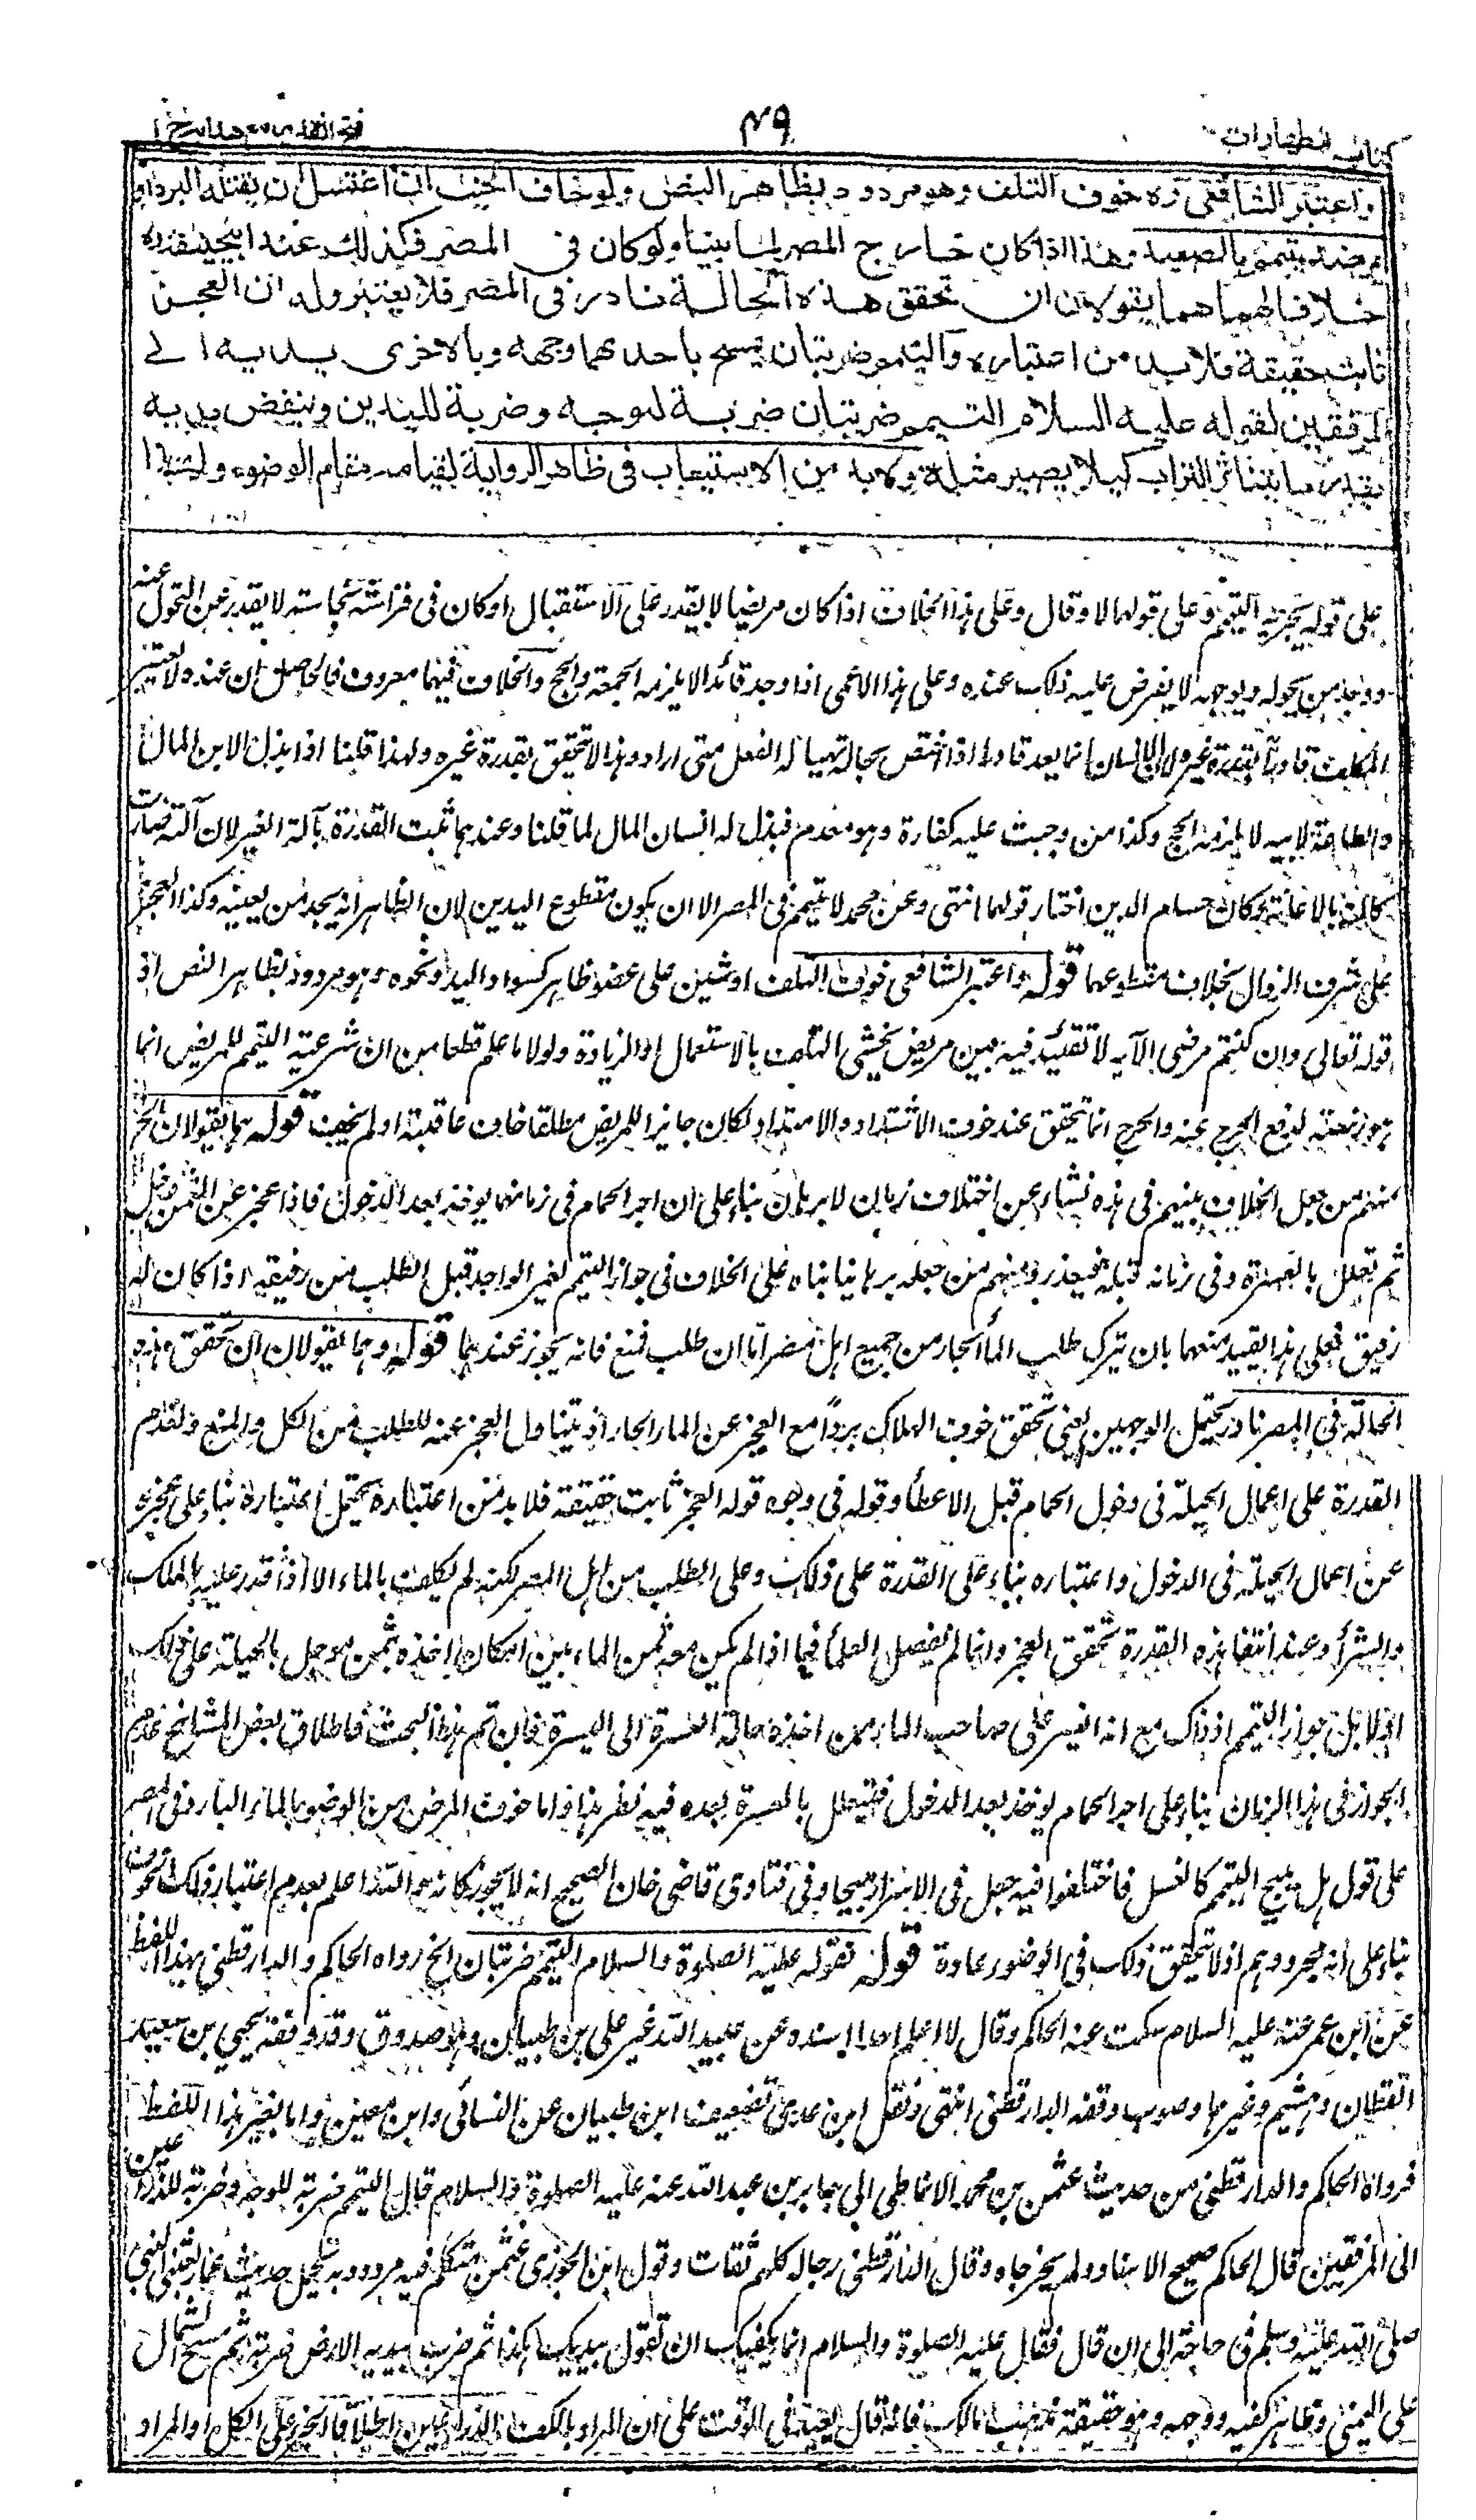 كتاب الطهارات
٤٩
فتح القدير مع هدايه ج ١
واعتبر الشافعى رح خوف التلف وهو مردود بظاهر النص ولو خاف الجنب ان اغتسل ان يقتله البرد او
يمرضه يتيمم بالصعيد وهذا اذا كان خارج المصر لما بينا ولو كان فى المصر فكذلك عند ابيحنيفة ره
خلافا لهما هما يقولان ان تحقق هذه الحالة نادر فى المصر فلا يعتبر وله ان العجز
ثابت حقيقة فلابد من اعتباره والتيمم ضربتان يمسح باحدهما وجهه وبالاخرى يديه الى
المرفقين لقوله عليه السلام التيمم ضربتان ضربة للوجه وضربة لليدين وينفض يديه
بقدر ما يتناثر التراب كيلا يصير مثلة ولابد من الاستيعاب فى ظاهر الرواية لقيامه مقام الوضوء ولهذا
على قوله يجزيه التيمم وعلى قولهما لا وقال وعلى هذا الخلاف اذا كان مريضا لا يقدر على الاستقبال او كان فى فراشه نجاسة لا يقدر على التحول عنه
ووجد من يحوله ويوجهه لا يفرض عليه ذلك عنده وعلى هذا الاعمى اذا وجد قائدا لا يلزمه الجمعة والحج والخلاف فيهما معروف فالحاصل ان عنده لا يعتبر
المكلف قادرا بقدرة غيره لان الانسان انما يعد قادرا اذا اختص بحالة تهيأ له الفعل متى اراد وهذا لا تتحقق بقدرة غيره ولهذا قلنا اذا بذل الابن المال
والطاعة لابيه لا يلزمه الحج وكذا من وجبت عليه كفارة وهو معدم فبذل له انسان المال لما قلنا وعندهما تثبت القدرة بآلة الغير لان آلته صارت
كآلته بالاعانة وكان حسام الدين اختار قولهما انتهى وعن محمد لا يتيمم فى المصر الا ان يكون مقطوع اليدين لان الظاهر انه يجد من يعينه وكذا العجز
على شرف الزوال بخلاف مقطوعهما قوله واعتبر الشافعى خوف التلف او شين على عضو ظاهر كسواد اليد ونحوه وهو مردود بظاهر النص اذ
قوله تعالى وان كنتم مرضى الآية لا تقييد فيه بين مريض يخشى التلف بالاستعمال او الزيادة ولولا ما علم قطعا من ان شرعية التيمم للمريض انما
هو رخصة لدفع الحرج عنه والحرج انما يتحقق عند خوف الاشتداد والامتداد لكان جايزا للمريض مطلقا خاف عاقبته او لم يخف قوله هما يقولان الخ
منهم من جعل الخلاف بينهم فى هذه نشأ عن اختلاف زمان لا برهان بناء على ان اجر الحمام فى زمانهما يوخذ بعد الدخول فاذا عجز عن الثمن دخل
ثم تعلل بالعسرة وفى زمانه قبله فيعذر ومنهم من جعله برهانيا بناه على الخلاف فى جواز التيمم لغير الواجد قبل الطلب من رفيقه اذا كان له
رفيق فعلى هذا يقيد منعهما بان يترك طلب الماء الحار من جميع اهل مصر اما ان طلب فمنع فانه يجوز عندهما قوله وهما يقولان ان تحقق هذه
الحالة فى المصر نادر يحتمل الوجهين يعنى تحقق خوف الهلاك بردا مع العجز عن الماء الحار اذ يتناول العجز عنه للطلب من الكل والمنع ولعدم
القدرة على اعمال الحيلة فى دخول الحمام قبل الاعطاء وقوله فى وجوه قوله العجز ثابت حقيقة فلا بد من اعتباره يحتمل اعتباره بناء على عجزه
عن اعمال الحيلة فى الدخول واعتباره بناء على القدرة على ذلك وعلى الطلب من اهل المصر لكنه لم يكلف بالماء الا اذا قدر عليه بالملك
والشراء وعند انتفاء هذه القدرة تحقق العجز وانما لم يفصل العلماء فيما اذا لم يكن معه ثمن الماء بين امكان اخذه بثمن موجل بالحيلة على ذلك
او لا بل جواز التيمم اذ ذاك مع انه ايسر على صاحب الماء ممن اخذه حالة العسرة الى الميسرة فان تم هذا البحث فاطلاق بعض المشايخ عدم
الجواز فى هذا الزمان بناء على اجر الحمام يوخذ بعد الدخول فيتعلل بالعسرة بعده فيه نظر هذا واما خوف المرض من الوضوء بالماء البارد فى المصر
على قوله هل يبيح التيمم كالغسل فاختلفوا فيه جعل فى الاسرار مبيحا وفى فتاوى قاضى خان الصحيح انه لا يجوز كانه والله اعلم لعدم اعتبار ذلك الخوف
بناء على انه مجرد وهم اذ لا يتحقق ذلك فى الوضوء عادة قوله لقوله عليه الصلوة والسلام التيمم ضربتان الخ رواه الحاكم والدار قطنى بهذا اللفظ
عن ابن عمر عنه عليه السلام سكت عنه الحاكم وقال لا اعلم احدا اسنده عن عبيد الله غير على بن ظبيان وهو صدوق وقد وقفه يحيى بن سعيد
القطان وهشيم وغيرهما وصوب وقفه الدار قطنى انتهى ونقل ابن عدى تضعيف ابن ظبيان عن النسائى وابن معين واما بغير هذا اللفظ
فرواه الحاكم والدار قطنى من حديث عثمن بن محمد الانماطى الى جابر بن عبد الله عنه عليه الصلوة والسلام قال التيمم ضربة للوجه وضربة للذراعين
الى المرفقين قال الحاكم صحيح الاسناد ولم يخرجاه وقال الدار قطنى رجاله كلهم ثقات وقول ابن الجوزى عثمن متكلم فيه مردود به يحمل حديث عمار بعثنى النبى
صلى الله عليه وسلم فى حاجة الى ان قال فقال عليه الصلوة والسلام انما يكفيك ان تقول بيديك هكذا ثم ضرب بيديه الارض ضربة ثم مسح الشمال
على اليمنى وظاهر كفيه ووجهه وهو حقيقة مذهب مالك فانه قال يعيد فى الوقت على ان المراد بالكف الذراعين اطلاقا الجزء على الكل او المراد